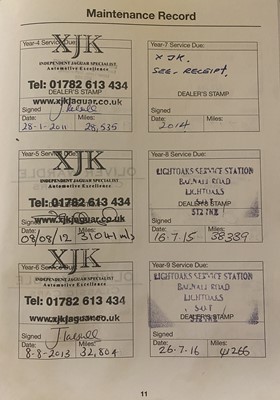 Maintenance Record
Year-4 Service Due:
XJK
INDEPENDENT JAGUAR SPECIALIST
Automotive Excellence
Tel: 01782 613 434
DEALER'S STAMP
www.xjkjaguar.co.uk
Signed
Date: Miles:
28-1-2011 28,535
Year-7 Service Due:
XJK.
SEE RECEIPT.
DEALER'S STAMP
Signed
Date: Miles:
2014
Year-5 Service Due:
XJK
INDEPENDENT JAGUAR SPECIALIST
Automotive Excellence
Tel: 01782 613 434
DEALER'S STAMP
www.xjkjaguar.co.uk
Signed
Date: Miles:
08/08/12 31041 mls
Year-8 Service Due:
LIGHTOAKS SERVICE STATION
BAGNALL ROAD
LIGHTOAKS
DEALER'S STAMP
S-O-T
ST2 7NE
Signed
Date: Miles:
16.7.15 38389
Year-6 Service Due:
XJK
INDEPENDENT JAGUAR SPECIALIST
Automotive Excellence
Tel: 01782 613 434
DEALER'S STAMP
www.xjkjaguar.co.uk
Signed
Date: Miles:
8-8-2013 32,804
Year-9 Service Due:
LIGHTOAKS SERVICE STATION
BAGNALL ROAD
LIGHTOAKS
S-O-T
DEALER'S STAMP
ST2 7NE
Signed
Date: Miles:
26.7.16 41266
11